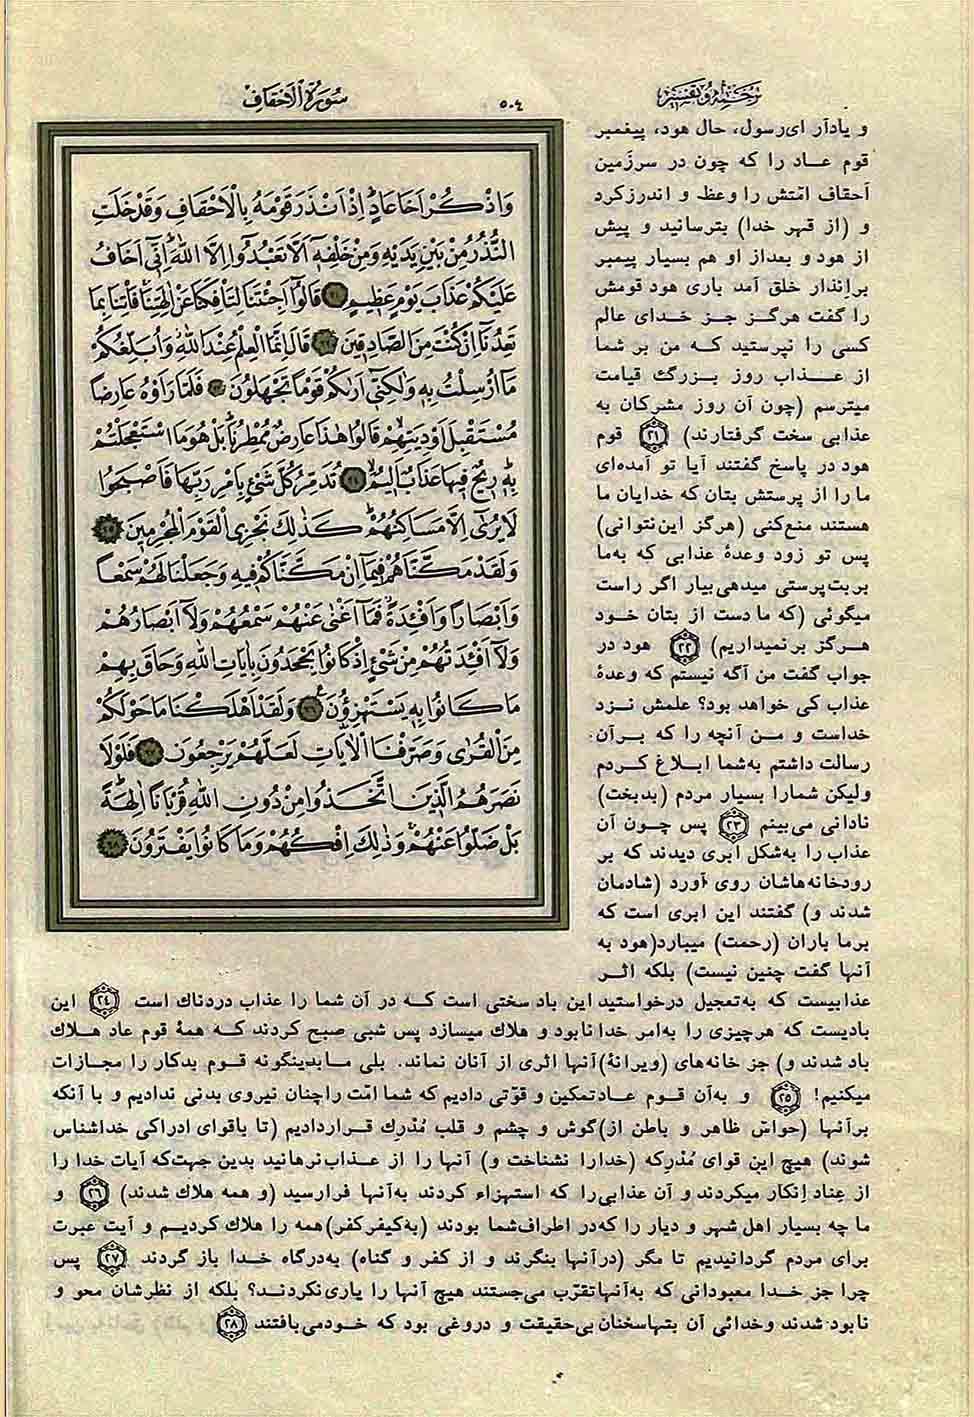 سُورَةُ الْاَحْقَافِ
٥٠٤
تَرجَمه و تَفسیر
وَاذْكُرْ اَخَا عَادٍ اِذْ اَنْذَرَ قَوْمَهُ بِالْاَحْقَافِ وَقَدْ خَلَتِ
النُّذُرُ مِنْ بَيْنِ يَدَيْهِ وَمِنْ خَلْفِهٖ اَلَّا تَعْبُدُوا اِلَّا اللّٰهَ اِنّٖى اَخَافُ
عَلَيْكُمْ عَذَابَ يَوْمٍ عَظٖيمٍ ٢١ قَالُوا اَجِئْتَنَا لِتَاْفِكَنَا عَنْ اٰلِهَتِنَا فَاْتِنَا بِمَا
تَعِدُنَا اِنْ كُنْتَ مِنَ الصَّادِقٖينَ ٢٢ قَالَ اِنَّمَا الْعِلْمُ عِنْدَ اللّٰهِ وَاُبَلِّغُكُمْ
مَا اُرْسِلْتُ بِهٖ وَلٰكِنّٖى اَرٰيكُمْ قَوْمًا تَجْهَلُونَ ٢٣ فَلَمَّا رَاَوْهُ عَارِضًا
مُسْتَقْبِلَ اَوْدِيَتِهِمْ قَالُوا هٰذَا عَارِضٌ مُمْطِرُنَا بَلْ هُوَ مَا اسْتَعْجَلْتُمْ
بِهٖ رٖيحٌ فٖيهَا عَذَابٌ اَلٖيمٌ ٢٤ تُدَمِّرُ كُلَّ شَىْءٍ بِاَمْرِ رَبِّهَا فَاَصْبَحُوا
لَا يُرٰى اِلَّا مَسَاكِنُهُمْ كَذٰلِكَ نَجْزِى الْقَوْمَ الْمُجْرِمٖينَ ٢٥
وَلَقَدْ مَكَّنَّاهُمْ فٖيمَا اِنْ مَكَّنَّاكُمْ فٖيهِ وَجَعَلْنَا لَهُمْ سَمْعًا
وَاَبْصَارًا وَاَفْئِدَةً فَمَا اَغْنٰى عَنْهُمْ سَمْعُهُمْ وَلَا اَبْصَارُهُمْ
وَلَا اَفْئِدَتُهُمْ مِنْ شَىْءٍ اِذْ كَانُوا يَجْحَدُونَ بِاٰيَاتِ اللّٰهِ وَحَاقَ بِهِمْ
مَا كَانُوا بِهٖ يَسْتَهْزِؤُنَ ٢٦ وَلَقَدْ اَهْلَكْنَا مَا حَوْلَكُمْ
مِنَ الْقُرٰى وَصَرَّفْنَا الْاٰيَاتِ لَعَلَّهُمْ يَرْجِعُونَ ٢٧ فَلَوْلَا
نَصَرَهُمُ الَّذٖينَ اتَّخَذُوا مِنْ دُونِ اللّٰهِ قُرْبَانًا اٰلِهَةً
بَلْ ضَلُّوا عَنْهُمْ وَذٰلِكَ اِفْكُهُمْ وَمَا كَانُوا يَفْتَرُونَ ٢٨
و یادآر ای‌رسول، حال هود، پیغمبر
قوم عـاد را که چون در سرزَمین
اَحقاف امّتش را وعظ و اندرزکرد
و (از قهر خدا) بترسانید و پیش
از هود و بعداز او هم بسیار پیمبر
براِنذار خلق آمد باری هود قومش
را گفت هرگز جز خدای عالم
کسی را نپرستید که من بر شما
از عـذاب روز بـزرگ قیامت
میترسم (چون آن روز مشرکان به
عذابی سخت گرفتارند) ٢١ قوم
هود در پاسخ گفتند آیا تو آمده‌ای
ما را از پرستش بتان که خدایان ما
هستند منع‌کنی (هرگز این‌نتوانی)
پس تو زود وعدهٔ عذابی که به‌ما
بربت‌پرستی میدهی‌بیار اگر راست
میگوئی (که ما دست از بتان خـود
هـرگز برنمیداریم) ٢٢ هود در
جواب گفت من آگه نیستم که وعدهٔ
عذاب کی خواهد بود؟ علمش نـزد
خداست و مـن آنچه را که برآن
رسالت داشتم به‌شما ابـلاغ کـردم
ولیکن شمارا بسیار مردم (بدبخت)
نادانی می‌بینم ٢٣ پس چـون آن
عذاب را به‌شکل اَبری دیدند که بر
رودخانه‌هاشان روی آورد (شادمان
شدند و) گفتند این ابری است که
برما باران (رحمت) میبارد(هود به
آنها گفت چنین نیست) بلکه اثـر
عذابیست که به‌تعجیل درخواستید این باد سختی است کـه در آن شما را عذاب دردناك است ٢٤ این
بادیست که هرچیزی را به‌امر خدا نابود و هلاك میسازد پس شبی صبح کردند کـه همهٔ قوم عاد هـلاك
باد شدند و) جز خانه‌های (ویرانهٔ)آنها اثری از آنان نماند. بلی مـا بدینگونه قـوم بدکار را مجـازات
میکنیم! ٢٥ و به‌آن قـوم عـادتمکین و قوّتی دادیم که شما امّت راچنان نیروی بدنی ندادیم و با آنکه
برآنها (حواسّ ظاهر و باطن از)گوش و چشم و قلب مُدْرِك قـراردادیم (تا باقوای ادراکی خداشناس
شوند) هیچ این قوای مُدْرِکه (خدارا نشناخت و) آنها را از عـذاب‌نرهانید بدین جهت‌که آیات خدا را
از عِناد اِنکار میکردند و آن عذابی‌را که استهزاء کردند به‌آنها فرارسید (و همه هلاك شدند) ٢٦ و
ما چه بسیار اهل شهر و دیار را که‌در اطراف‌شما بودند (به‌کیفرکفر)همه را هلاك کردیـم و آیت عبرت
برای مردم گردانیدیم تا مگر (درآنها بنگرند و از کفر و گناه) به‌درگاه خـدا باز گردند ٢٧ پس
چرا جز خـدا معبودانی که به‌آنهاتقرّب می‌جستند هیچ آنها را یاری‌نکردنـد؟ بلکه از نظرشان محو و
نابود شدند وخدائی آن بتهاسخنان بی‌حقیقت و دروغی بود که خودمی‌بافتند ٢٨